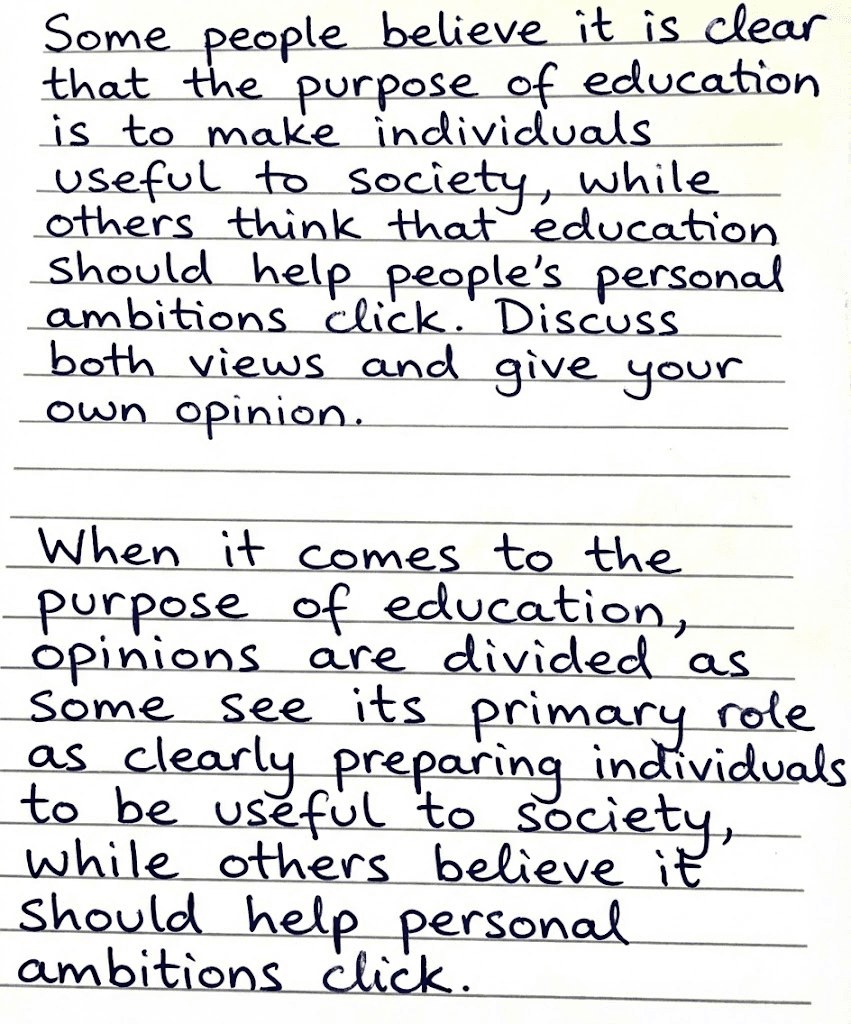 Some people believe it is clear
that the purpose of education
is to make individuals
useful to society, while
others think that education
should help people's personal
ambitions click. Discuss
both views and give your
own opinion.
When it comes to the
purpose of education,
opinions are divided as
some see its primary role
as clearly preparing individuals
to be useful to society,
while others believe it
should help personal
ambitions click.